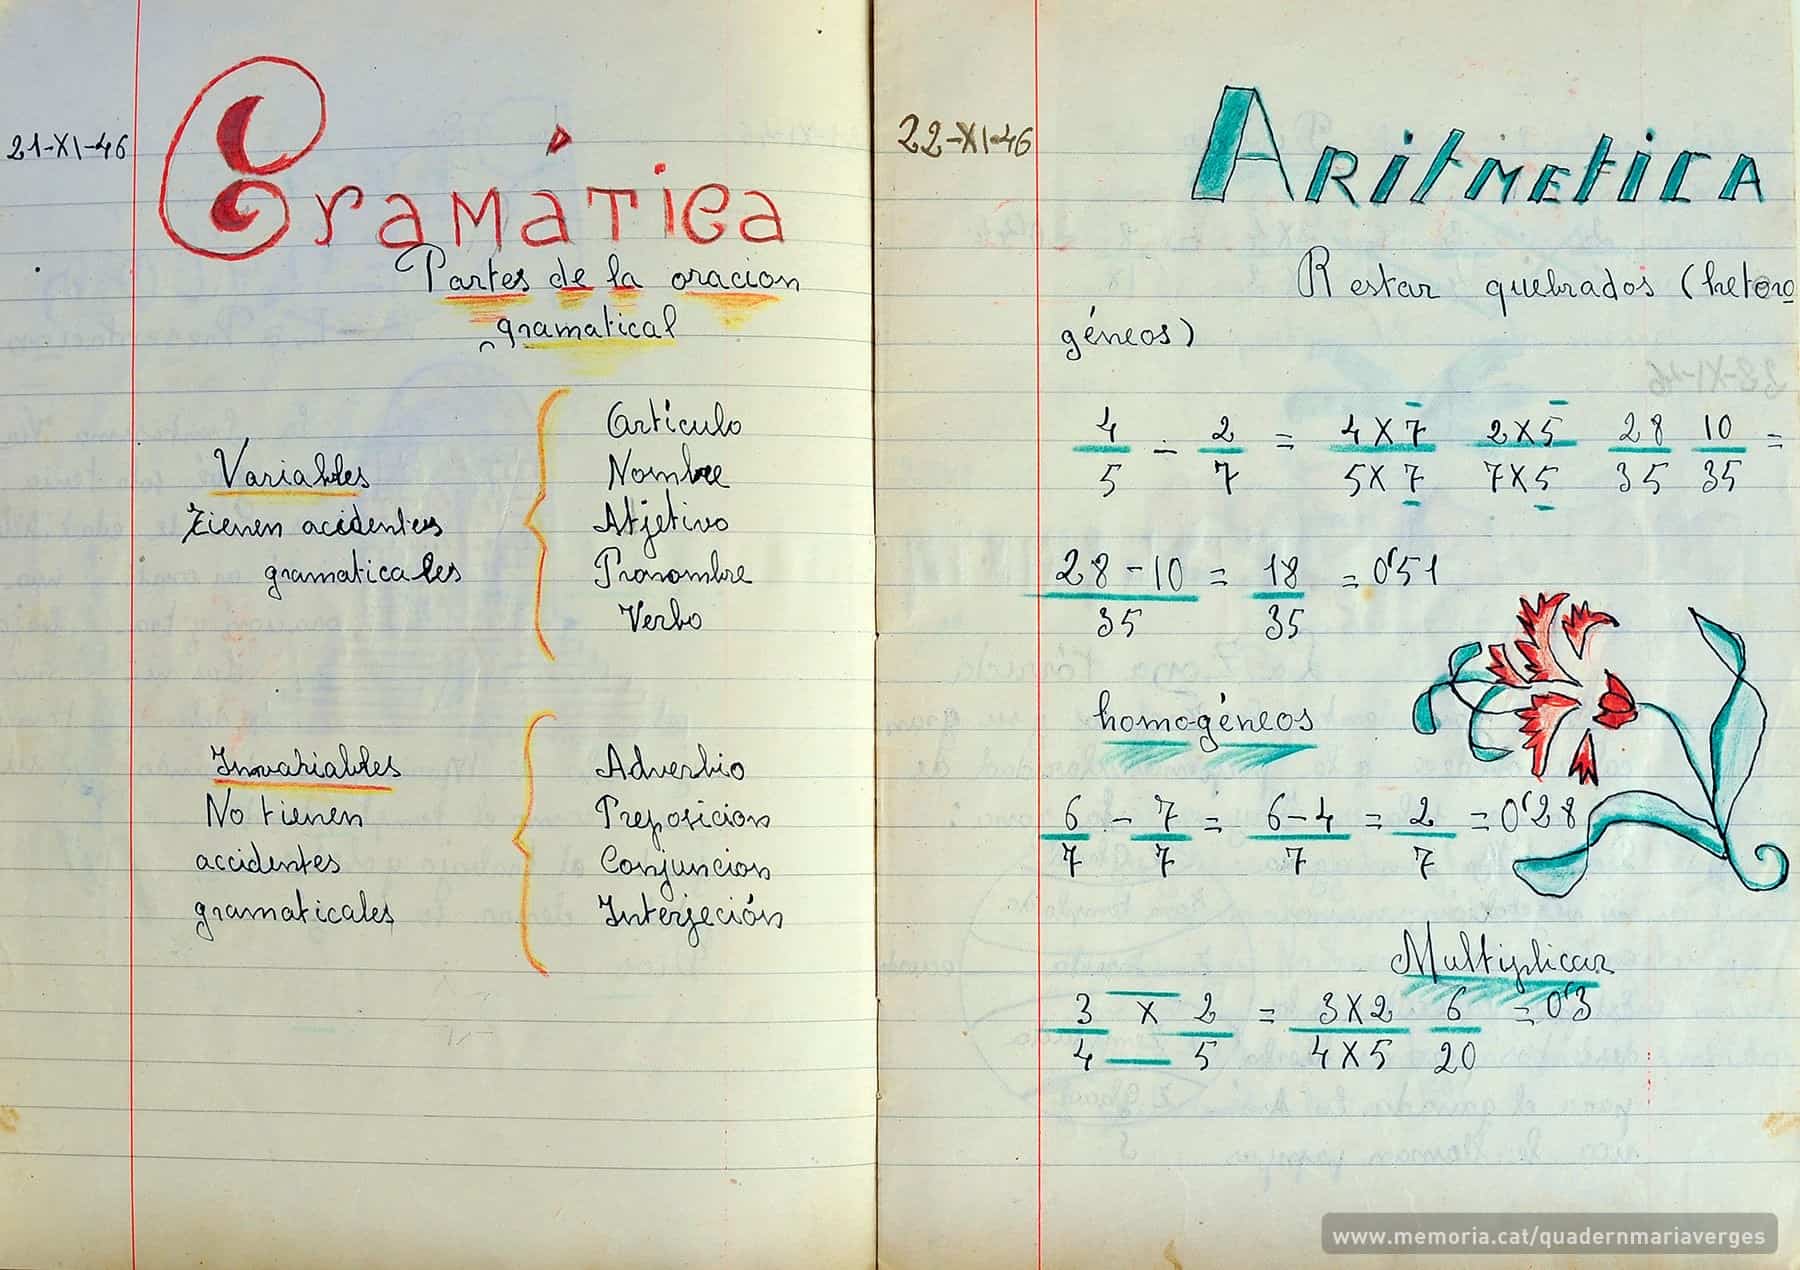 21-XI-46
Gramática
Partes de la oracion
gramatical
Variables
Tienen accidentes
gramaticales
Artículo
Nombre
Atjetivo
Pronombre
Verbo
Invariables
No tienen
accidentes
gramaticales
Adverbio
Preposicion
Conjuncion
Interjeción
22-XI-46
Aritmetica
Restar quebrados (hetero
géneos)
4/5 - 2/7 = 4X7/5X7 2X5/7X5 28/35 10/35 =
28-10/35 = 18/35 = 0'51
homogéneos
6/7 - 7/7 = 6-4/7 = 2/7 = 0'28
Multiplicar
3/4 X 2/5 = 3X2/4X5 6/20 = 0'3
www.memoria.cat/quadernmariaverges